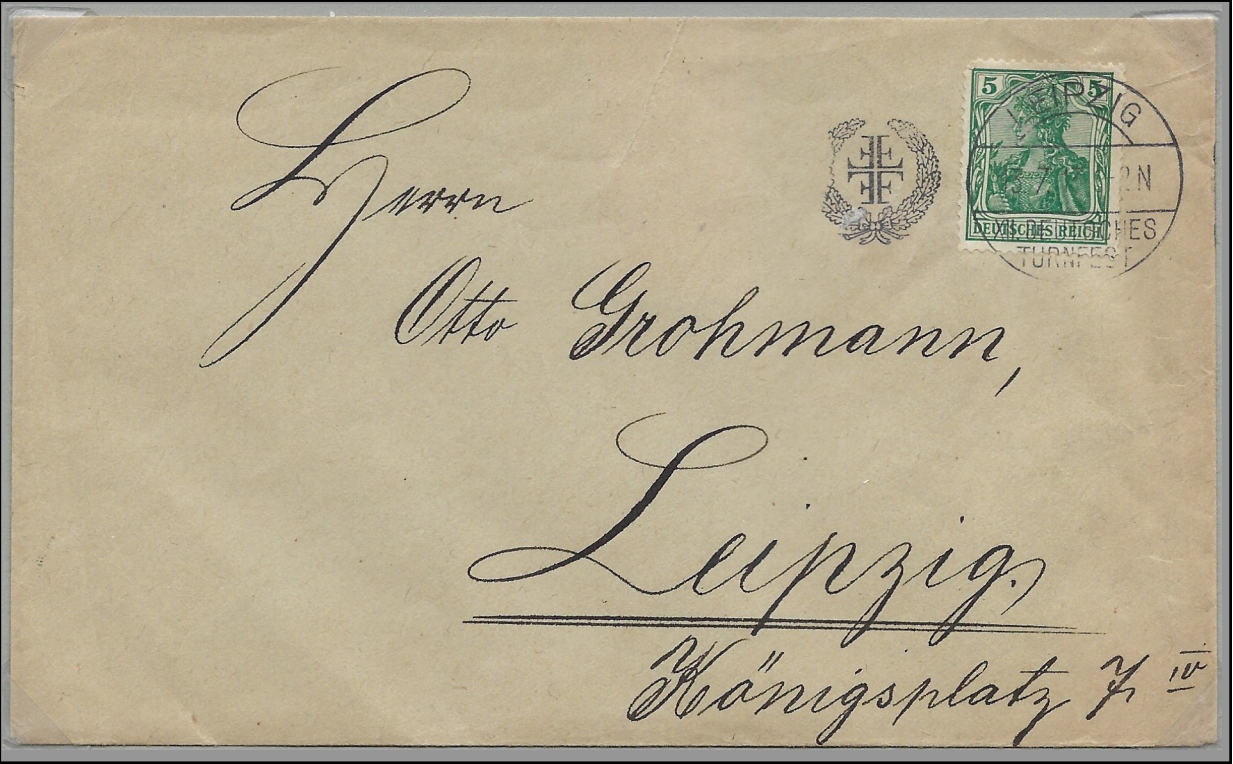 5 5
DEUTSCHES REICH
LEIPZIG
7. -2N
XII. DEUTSCHES
TURNFEST
FF
FF
Herrn
Otto Grohmann,
Leipzig.
Königsplatz 7 IV